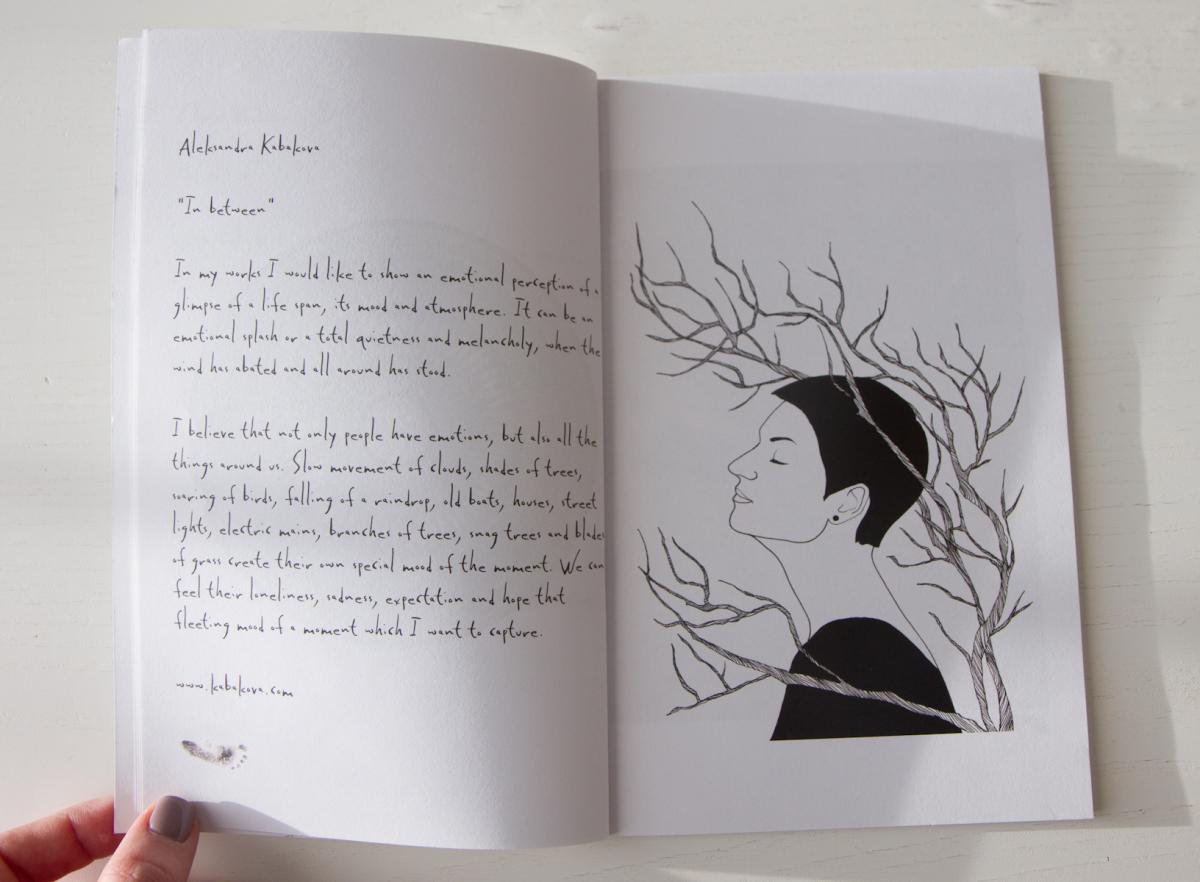 Aleksandra Kabakova
"In between"
In my works I would like to show an emotional perception of a
glimpse of a life span, its mood and atmosphere. It can be an
emotional splash or a total quietness and melancholy, when the
wind has abated and all around has stood.
I believe that not only people have emotions, but also all the
things around us. Slow movement of clouds, shades of trees,
soaring of birds, falling of a raindrop, old boats, houses, street
lights, electric mains, branches of trees, snag trees and blades
of grass create their own special mood of the moment. We can
feel their loneliness, sadness, expectation and hope that
fleeting mood of a moment which I want to capture.
www.kabakova.com